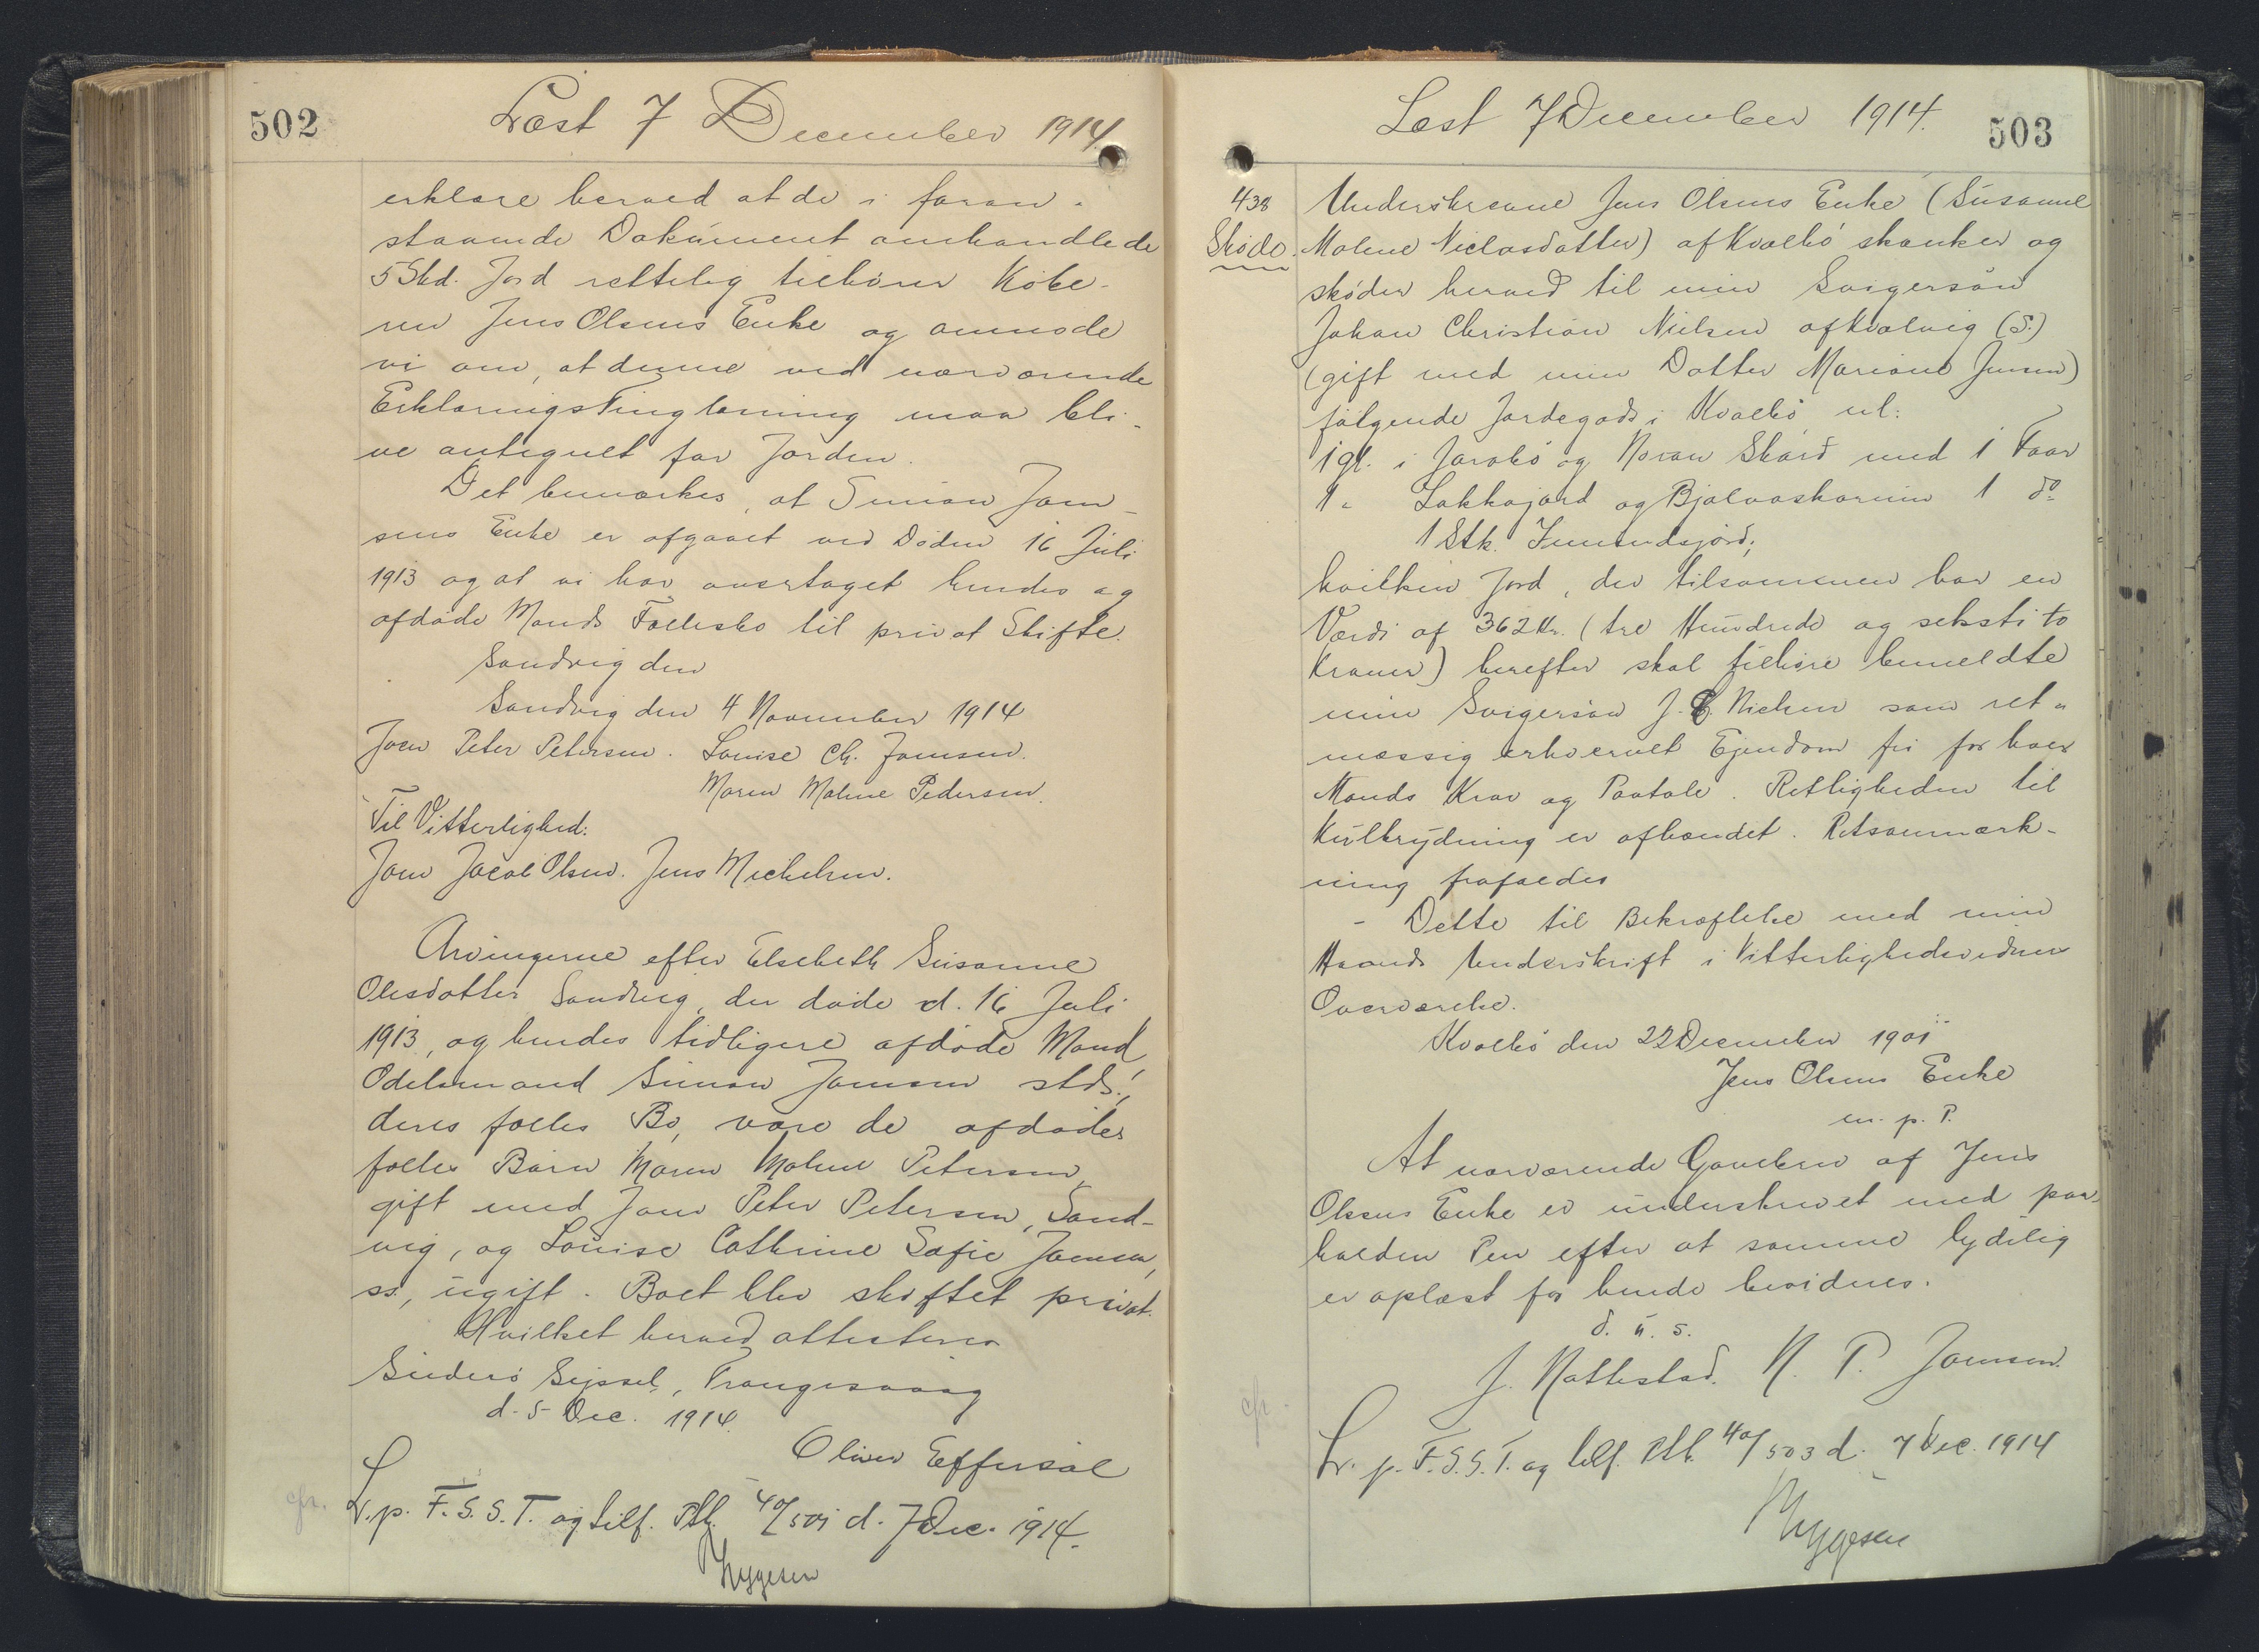 502
Læst 7 December 1914.
erklære herved at de i foran-
staaende Dokument omhandlede
5 Skd. Jord rettelig tilhører Købe-
ren Jens Olsens Enke og anmode
vi om, at denne ved nærværende
Erklærings Tinglæsning maa bli-
ve antegnet for Jorden.
Det bemærkes, at Simon Joen-
sens Enke er afgaaet ved Døden 16 Juli
1913 og at vi har overtaget hendes og
afdøde Mands Fællesbo til privat Skifte.
Sandvig den
Sandvig den 4 November 1914
Joen Peter Petersen. Louise Ch. Joensen.
Maren Malene Pedersen.
Til Vitterlighed:
Joen Jacob Olsen. Jens Michelsen.
Arvingerne efter Elsebeth Susanne
Olesdatter Sandvig, der døde d. 16 Juli
1913, og hendes tidligere afdøde Mand,
Odelsmand Simon Joensen stds.,
deres fælles Bo, vare de afdødes
fælles Børn Maren Malene Petersen,
gift med Joen Peter Petersen, Sand-
vig, og Louise Cathrine Sofie Joensen,
ss, ugift. Boet blev skiftet privat.
Hvilket herved attesteres
Suderø Sejssel, Trangisvaag
d. 5 Dec. 1914.
Oliver Effersøe
cfr. L. p. F. S. S. T. og tilf. Ptb. 40/501 d. 7 Dec. 1914.
Hygesen
Læst 7 December 1914.
503
438
Skøde.
Underskrevne Jens Olsens Enke (Susanne
Malene Niclasdatter) af Kvalbø skænker og
skøder herved til min Svigersøn
Johan Christian Nielsen af Kvalvig (S.)
(gift med min Datter Mariane Jensen)
følgende Jordegods i Kvalbø, nl:
1 gl. i Jarabø og Noran Skard med 1 Faar
1 " Lakkajord og Bjalvaskorum 1 do
1 Stk. Inmundsjord;
hvilken Jord, der tilsammen har en
Værdi af 362 Kr. (tre Hundrede og seksti to
Kroner) herefter skal tilhøre bemeldte
min Svigersøn J. C. Nielsen som ret-
mæssig erhvervet Ejendom fri for hver
Mands Krav og Paatale. Rettigheden til
Kulbrydning er afhændet. Retsanmærk-
ning frafaldes
- Dette til Bekræftelse med min
Haands Underskrift i Vitterlighedsvidners
Overværelse.
Kvalbø den 22 December 1901
Jens Olsens Enke
m. p. P.
At nærværende Gavebrev af Jens
Olsens Enke er underskrevet med paa-
holden Pen efter at samme lydelig
er oplæst for hende bevidnes.
d. u. s.
J. Nattestad. N. P. Joensen.
cfr. L. p. F. S. S. T. og tilf. Ptb. 40/503 d. 7 Dec. 1914
Hygesen